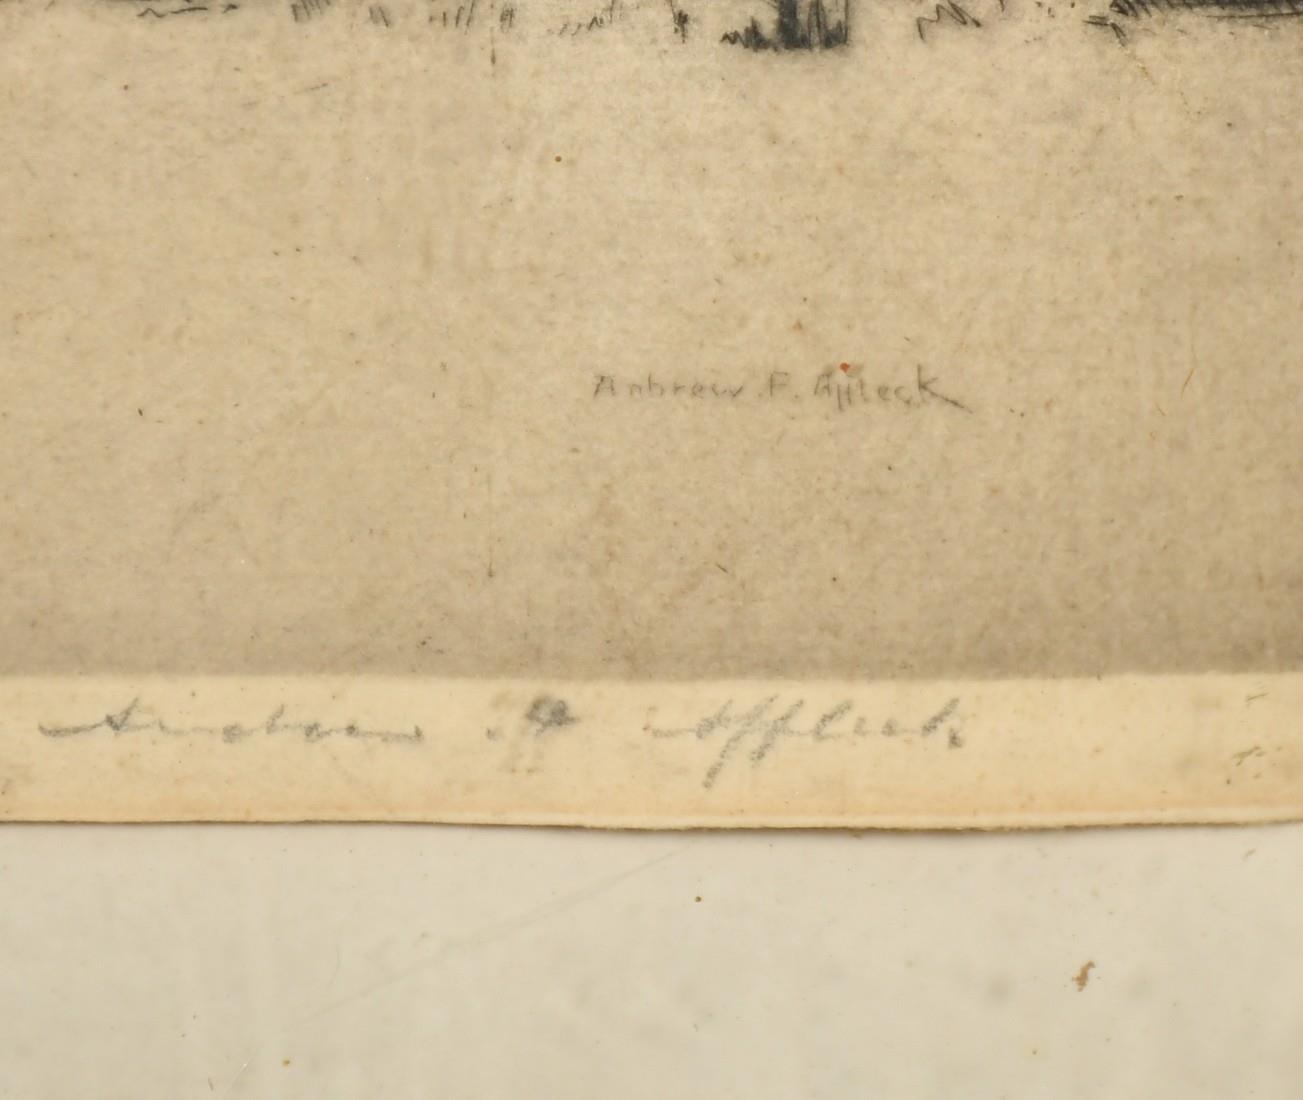 Andrew. F. Affleck
Andrew . F Affleck